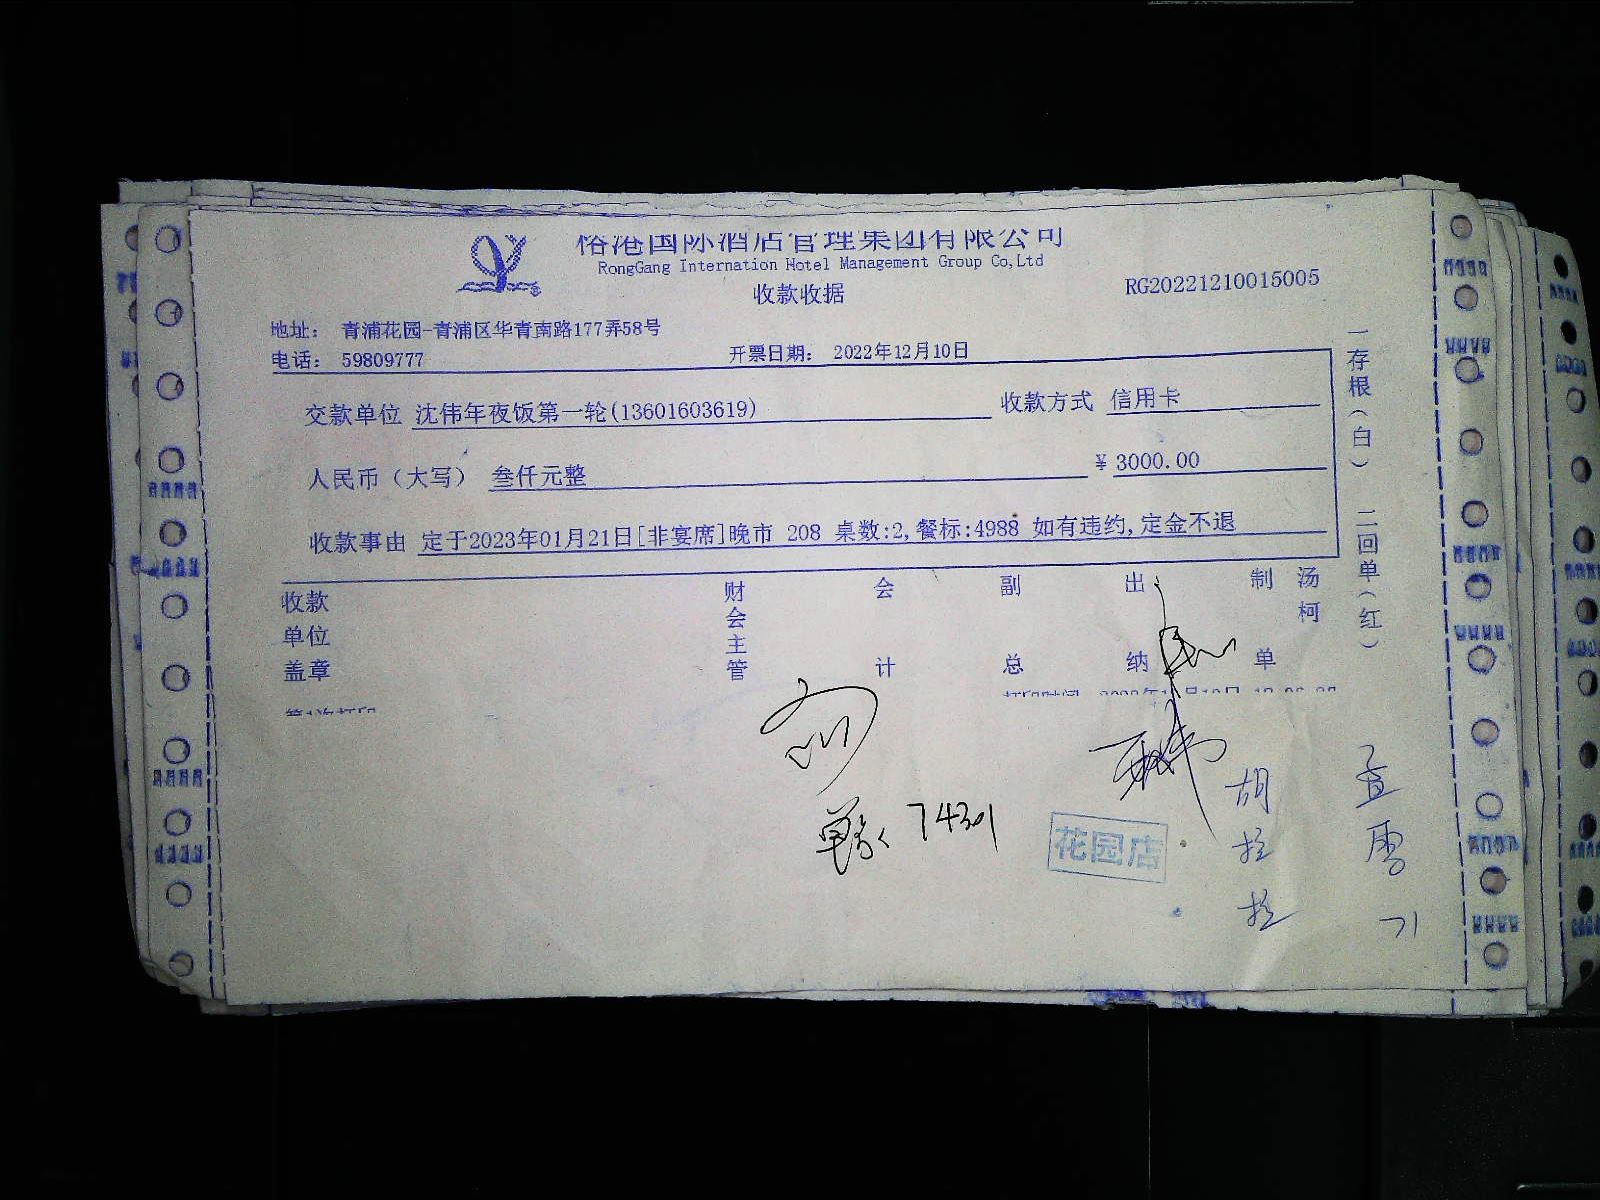 榕港国际酒店管理集团有限公司
RongGang Internation Hotel Management Group Co,Ltd
收款收据
RG20221210015005
地址： 青浦花园-青浦区华青南路177弄58号
电话： 59809777
开票日期： 2022年12月10日
交款单位 沈伟年夜饭第一轮(13601603619)
收款方式 信用卡
人民币（大写） 叁仟元整
¥ 3000.00
收款事由 定于2023年01月21日[非宴席]晚市 208 桌数:2,餐标:4988 如有违约,定金不退
一存根（白） 二回单（红）
收款单位盖章
财会主管
会计
副总
出纳
制单
汤柯
花园店